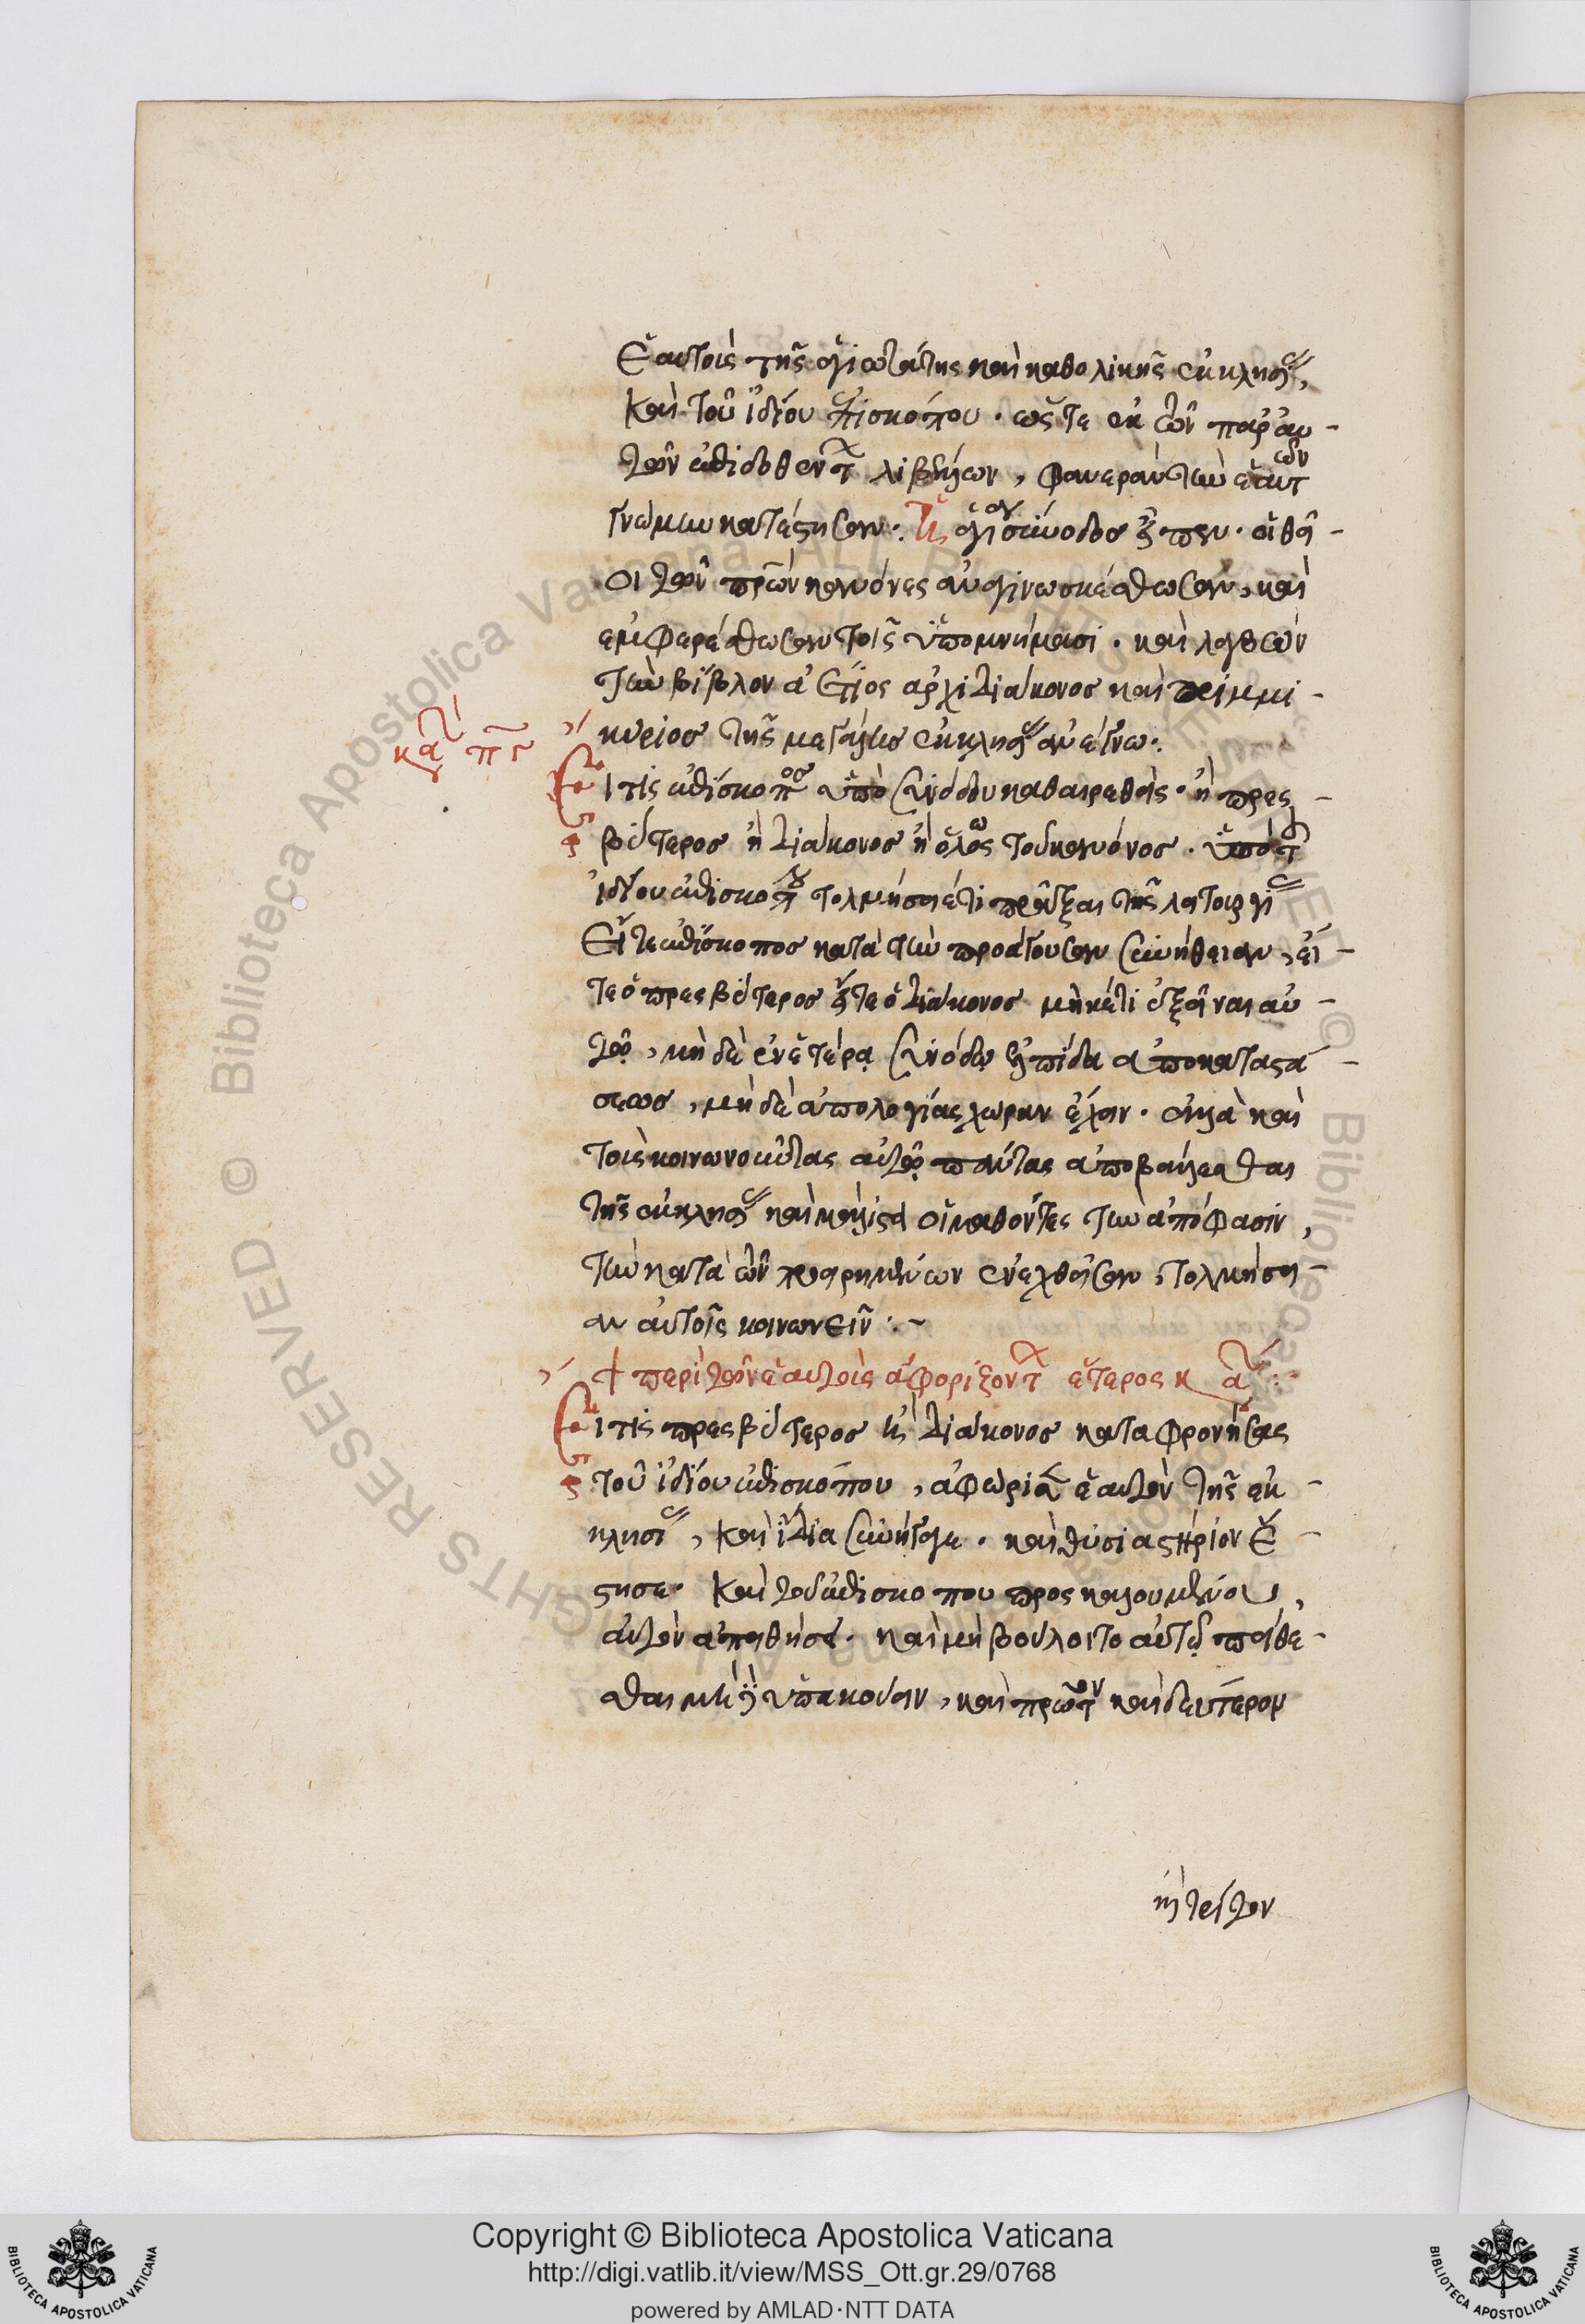 ἑαυτοὺς τῆς ἁγιωτάτης καὶ καθολικῆς ἐκκλησ,
καὶ τοῦ ἰδίου ἐπισκόπου · ὥς τε ἐκ τῶν παρ' αυ -
τῶν ἐπιδοθέντ λιβέλλων, φανερὰν τὴν ἑαυτων
γνώμην κατέστησαν · ἡ ἁγι σύνοδος εἶπεν · οἱ θεῖ -
οι τῶν πρων κανόνες ἀναγινωσκέσθωσαν, καὶ
ἐμφερέσθωσαν τοῖς ὑπομνήμασι · καὶ λαβὼν
τὴν βίβλον ἀέτιος ἀρχιδιάκονος καὶ πριμμι -
κήριος τῆς μεγάλης ἐκκλησ ἀνέγνω ·
κα
Εἴ τις ἐπίσκοπος ὑπὸ συνόδου καθαιρεθεὶς · ἢ πρεσ -
βύτερος ἢ διάκονος ἢ ὅλως τοῦ κανόνος · ὑπὸ τ
ἰδίου ἐπισκόπου τολμήσει ἔτι πρᾶξαι τῆς λειτουργί
Εἴτε ἐπίσκοπος κατὰ τὴν προάγουσαν συνήθειαν, εἴ -
τε ὁ πρεσβύτερος εἴτε ὁ διάκονος μηκέτι ἐξεῖναι αὐ -
τῷ, μὴ δὲ ἐν ἑτέρᾳ συνόδῳ ἐλπίδα ἀποκαταστά -
σεως, μὴ δὲ ἀπολογίας χώραν ἔχειν · ἀλλὰ καὶ
τοὺς κοινωνοῦντας αὐτῷ πάντας ἀποβάλλεσθαι
τῆς ἐκκλησ καὶ μάλιστα εἰ μαθόντες τὴν ἀπόφασιν,
τὴν κατὰ τῶν προειρημένων ἐνεχθεῖσαν, τολμήσει -
αν αὐτοῖς κοινωνεῖν · ~
+ περὶ τῶν ἑαυτοὺς ἀφορίζοντ ἕτερος κ α
Εἴ τις πρεσβύτερος ἢ διάκονος καταφρονήσας
τοῦ ἰδίου ἐπισκόπου, ἀφώρισεν ἑαυτὸν τῆς ἐκ -
κλησί, καὶ ἰδίᾳ συνήγαγε · καὶ θυσιαστήριον ἔ -
στησε · καὶ τοῦ ἐπισκόπου προσκαλουμένου,
αὐτὸν ἀπειθήσει · καὶ μὴ βούλοιτο αὐτῷ πείθε -
σθαι μὴ δὲ ὑπακούειν, καὶ πρῶτον καὶ δεύτερον
καὶ τρίτον
Copyright © Biblioteca Apostolica Vaticana
http://digi.vatlib.it/view/MSS_Ott.gr.29/0768
powered by AMLAD·NTT DATA
BIBLIOTECA APOSTOLICA VATICANA
BIBLIOTECA APOSTOLICA VATICANA